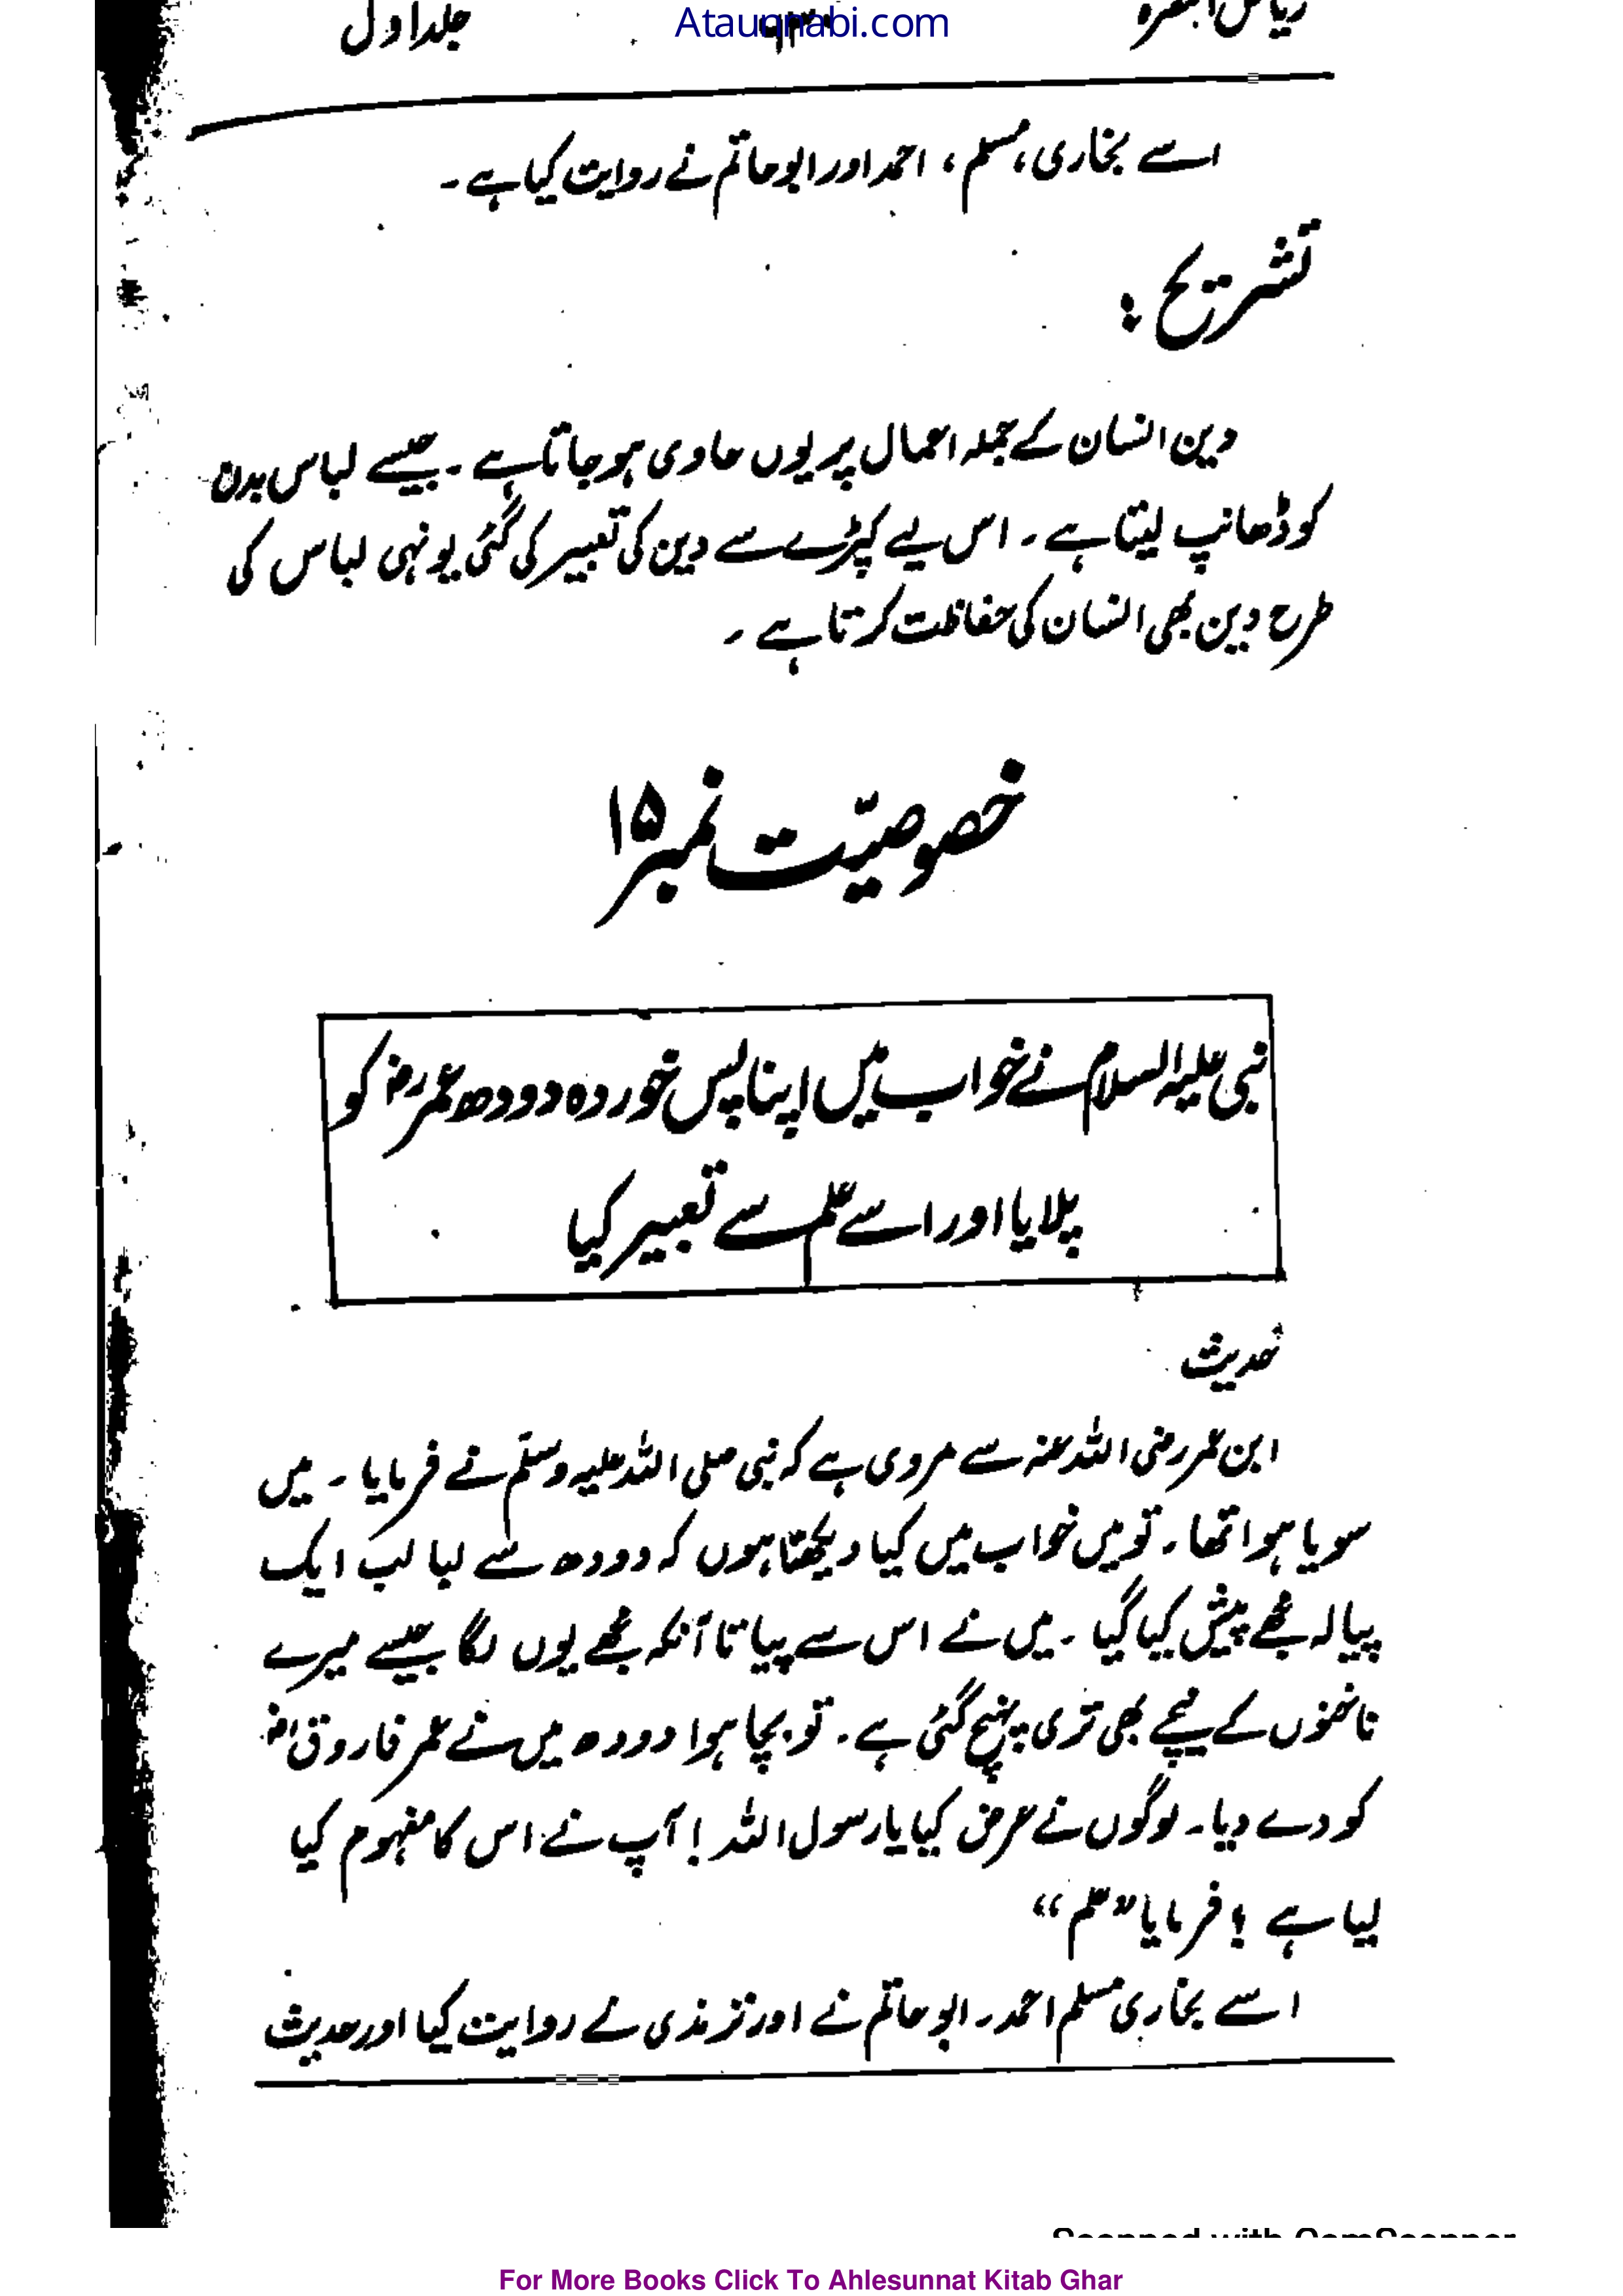 Ataunnabi.com
جلد اول
اسے بخاری، مسلم، احمد اور ابو حاتم نے روایت کیا ہے۔
تشریح:
دین انسان کے جملہ اعمال پر یوں حاوی ہو جاتا ہے۔ جیسے لباس بدن
کو ڈھانپ لیتا ہے۔ اس لیے کپڑے سے دین کی تعبیر کی گئی یونہی لباس کی
طرح دین بھی انسان کی حفاظت کرتا ہے۔
خصوصیّت نمبر ۱۵
نبی علیہ السلام نے خواب میں اپنا پس خوردہ دودھ عمر رض کو
پلایا اور اسے علم سے تعبیر کیا
حدیث
ابن عمر رضی اللہ عنہ سے مروی ہے کہ نبی صلی اللہ علیہ وسلّم نے فرمایا۔ میں
سویا ہوا تھا۔ تو میں خواب میں کیا دیکھتا ہوں کہ دودھ سے لبا لب ایک
پیالہ مجھے پیش کیا گیا۔ میں نے اس سے پیا تا آنکہ مجھے یوں لگا جیسے میرے
ناخنوں کے نیچے بھی تری پہنچ گئی ہے۔ تو بچا ہوا دودھ میں نے عمر فاروق رض
کو دے دیا۔ لوگوں نے عرض کیا یا رسول اللہ! آپ نے اس کا مفہوم کیا
لیا ہے؟ فرمایا ”علم“
اسے بخاری مسلم احمد۔ ابو حاتم نے اور ترمذی نے روایت کیا اور حدیث
For More Books Click To Ahlesunnat Kitab Ghar